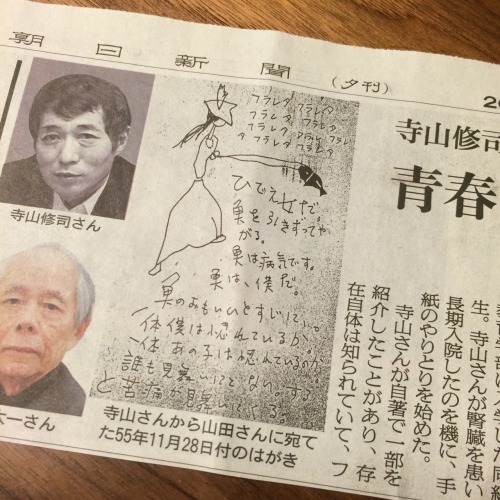 朝日新聞
(夕刊)
20
寺山修司
青春
寺山修司さん
一さん
フラレタ フラレタ
フラレタ フラレタ
フラレタ フラレタ
フラレタ フラレタ
ひでえ女だ。
魚を引きずってや
がる。
魚は病気です。
魚は、僕だ。
魚のおもいひとすじに
一体僕は恨んでいるか。
一体あの子は恨んでいるのか。
誰も見舞いにこない。する
と苦痛が見舞いにくる。
寺山さんから山田さんに宛て
た55年11月28日付のはがき
学部に入学した同級
生。寺山さんが腎臓を患い
長期入院したのを機に、手
紙のやりとりを始めた。
寺山さんが自著で一部を
紹介したことがあり、存
在自体は知られていて、フ